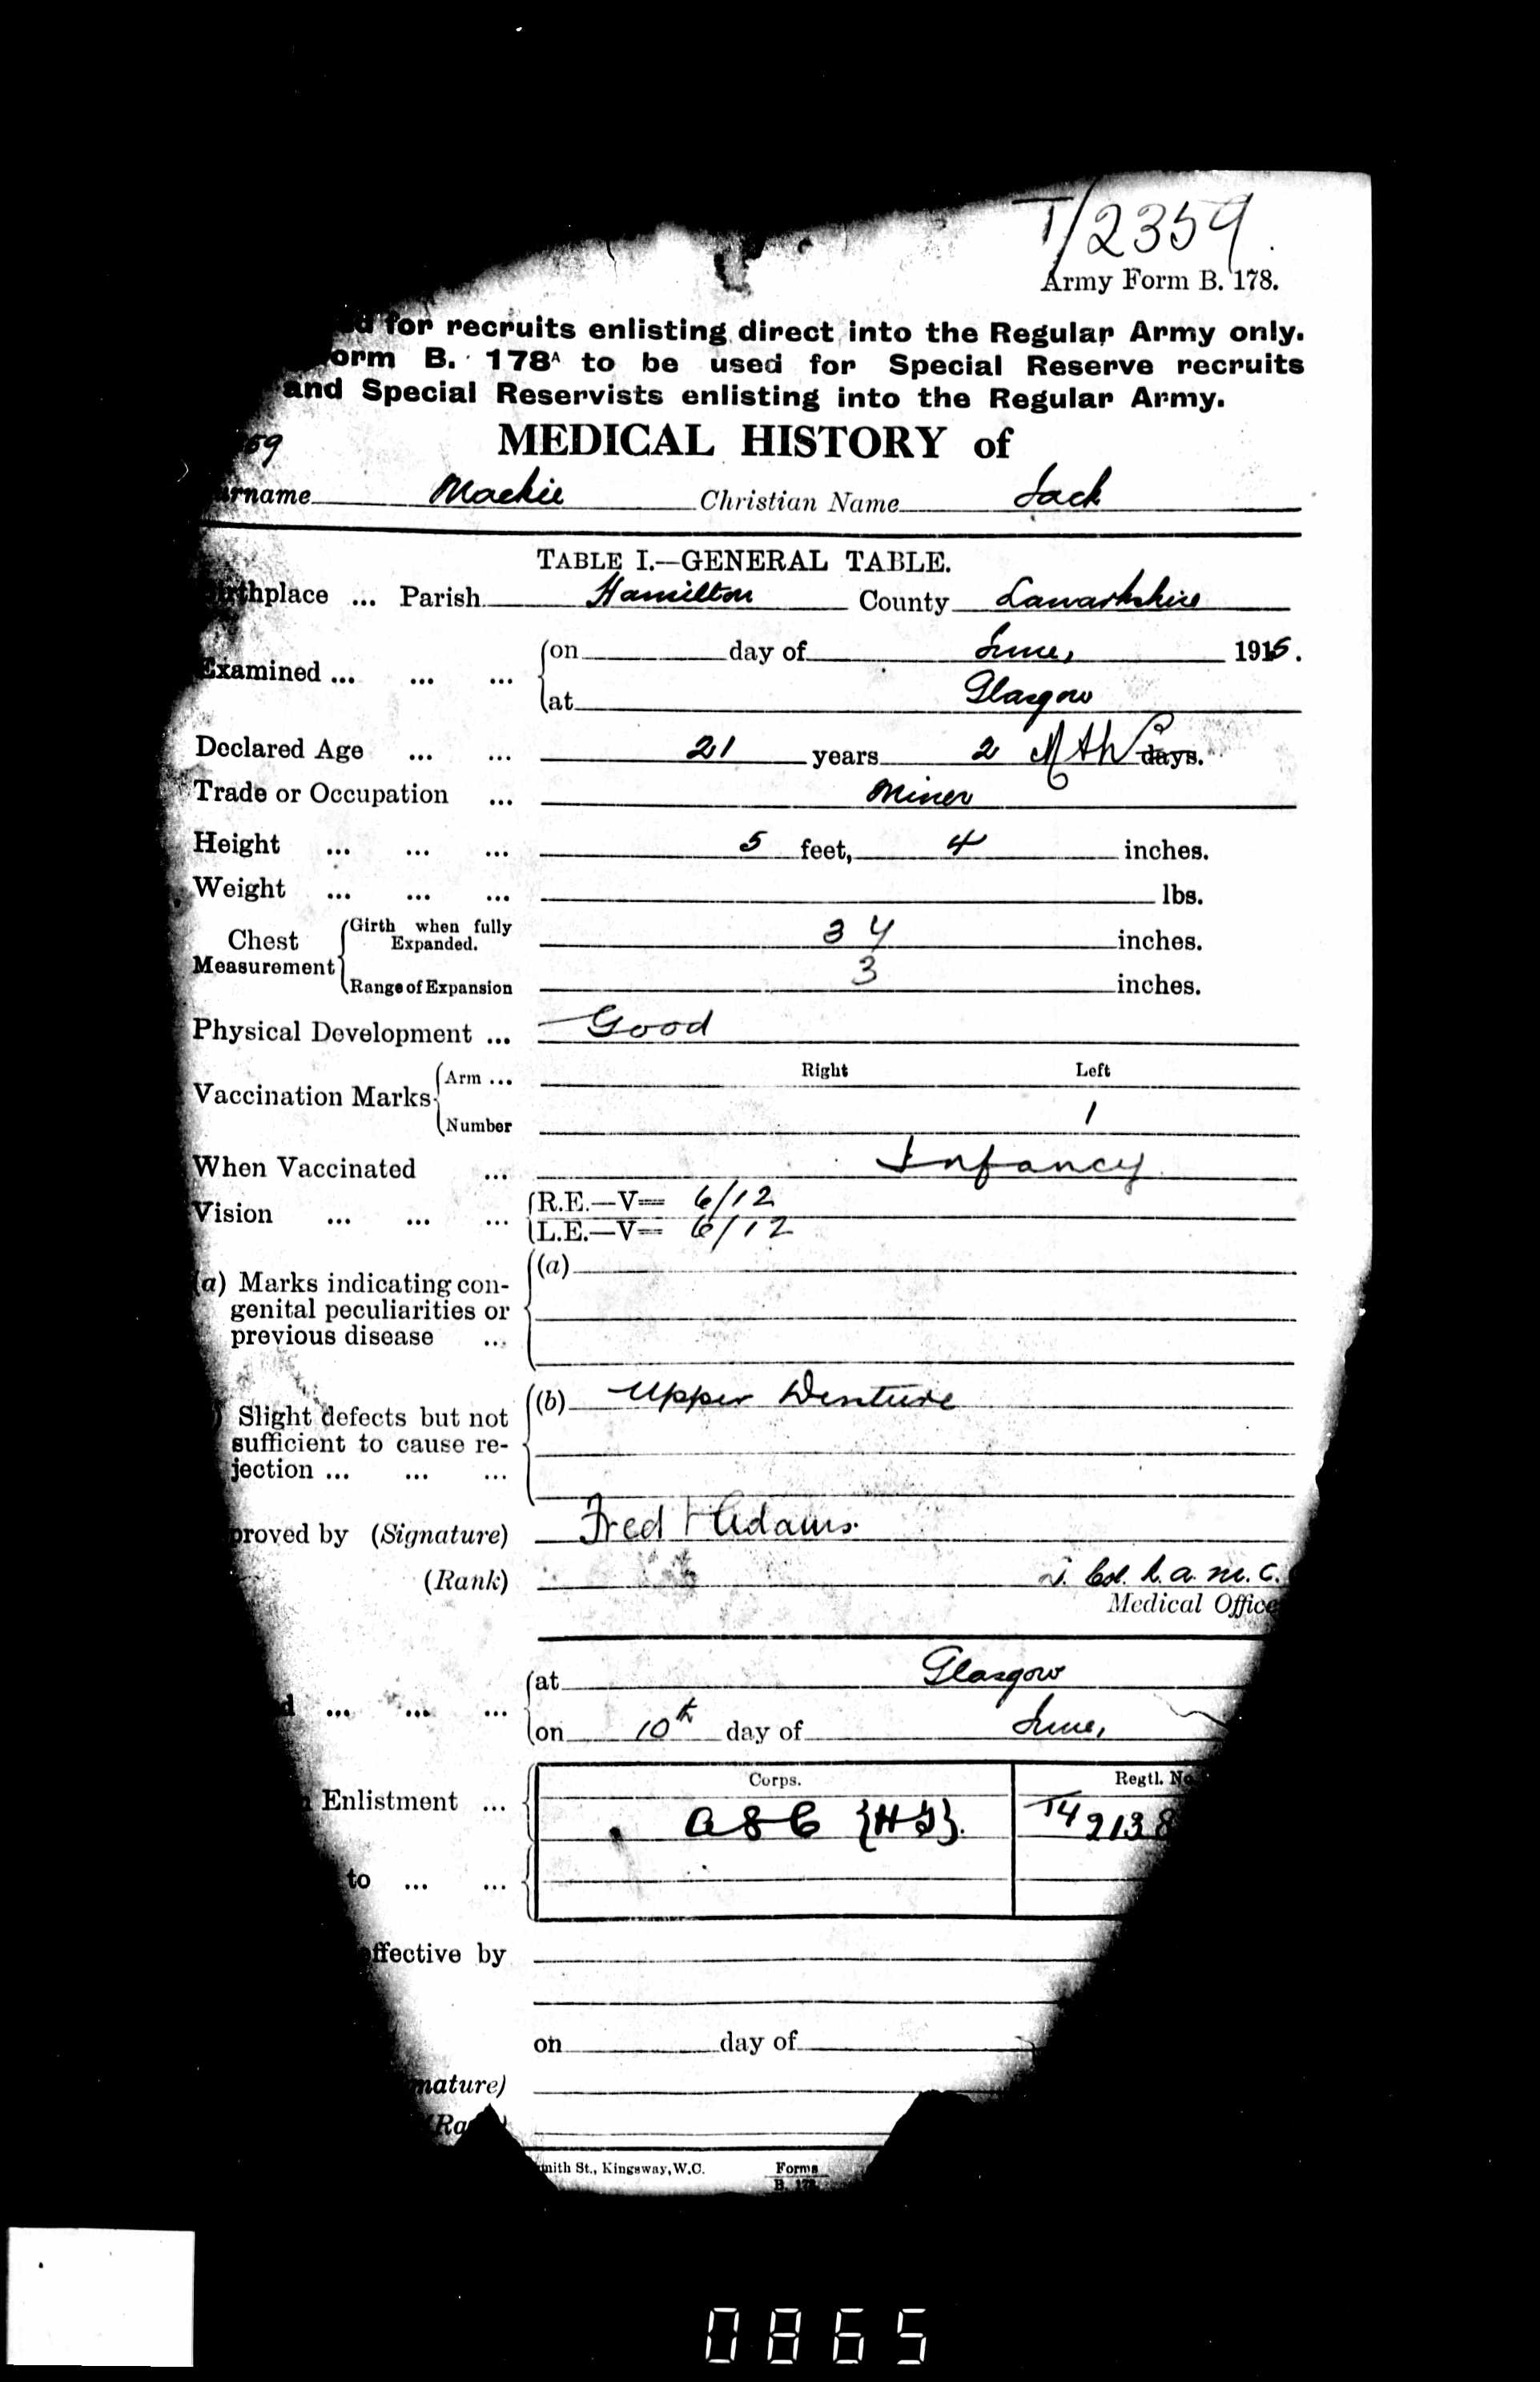 T/2359.
Army Form B. 178.
for recruits enlisting direct into the Regular Army only.
orm B. 178A to be used for Special Reserve recruits
and Special Reservists enlisting into the Regular Army.
59
MEDICAL HISTORY of
rname Mackie Christian Name Jack
TABLE I.—GENERAL TABLE.
rthplace ... Parish Hamilton County Lanarkshire
Examined ... ... ... on day of June, 1915.
at Glasgow
Declared Age ... ... 21 years 2 Mths days.
Trade or Occupation ... Miner
Height ... ... ... 5 feet, 4 inches.
Weight ... ... ... lbs.
Chest Measurement Girth when fully Expanded. 34 inches.
Range of Expansion 3 inches.
Physical Development ... Good
Right Left
Vaccination Marks Arm ...
Number 1
When Vaccinated ... Infancy
Vision ... ... ... R.E.—V= 6/12
L.E.—V= 6/12
(a) Marks indicating con- (a)
genital peculiarities or
previous disease ...
) Slight defects but not (b) Upper Denture
sufficient to cause re-
jection ... ... ...
proved by (Signature) Fred Adams.
(Rank) Col. R.A.M.C.
Medical Office
at Glasgow
d ... ... ...
on 10th day of June,
Corps. Regtl. No
Enlistment ... ASC {HT}. T4 9138
to ... ...
ffective by
on day of
nature)
(Ra
mith St., Kingsway, W.C. Forms
B. 178.
0865